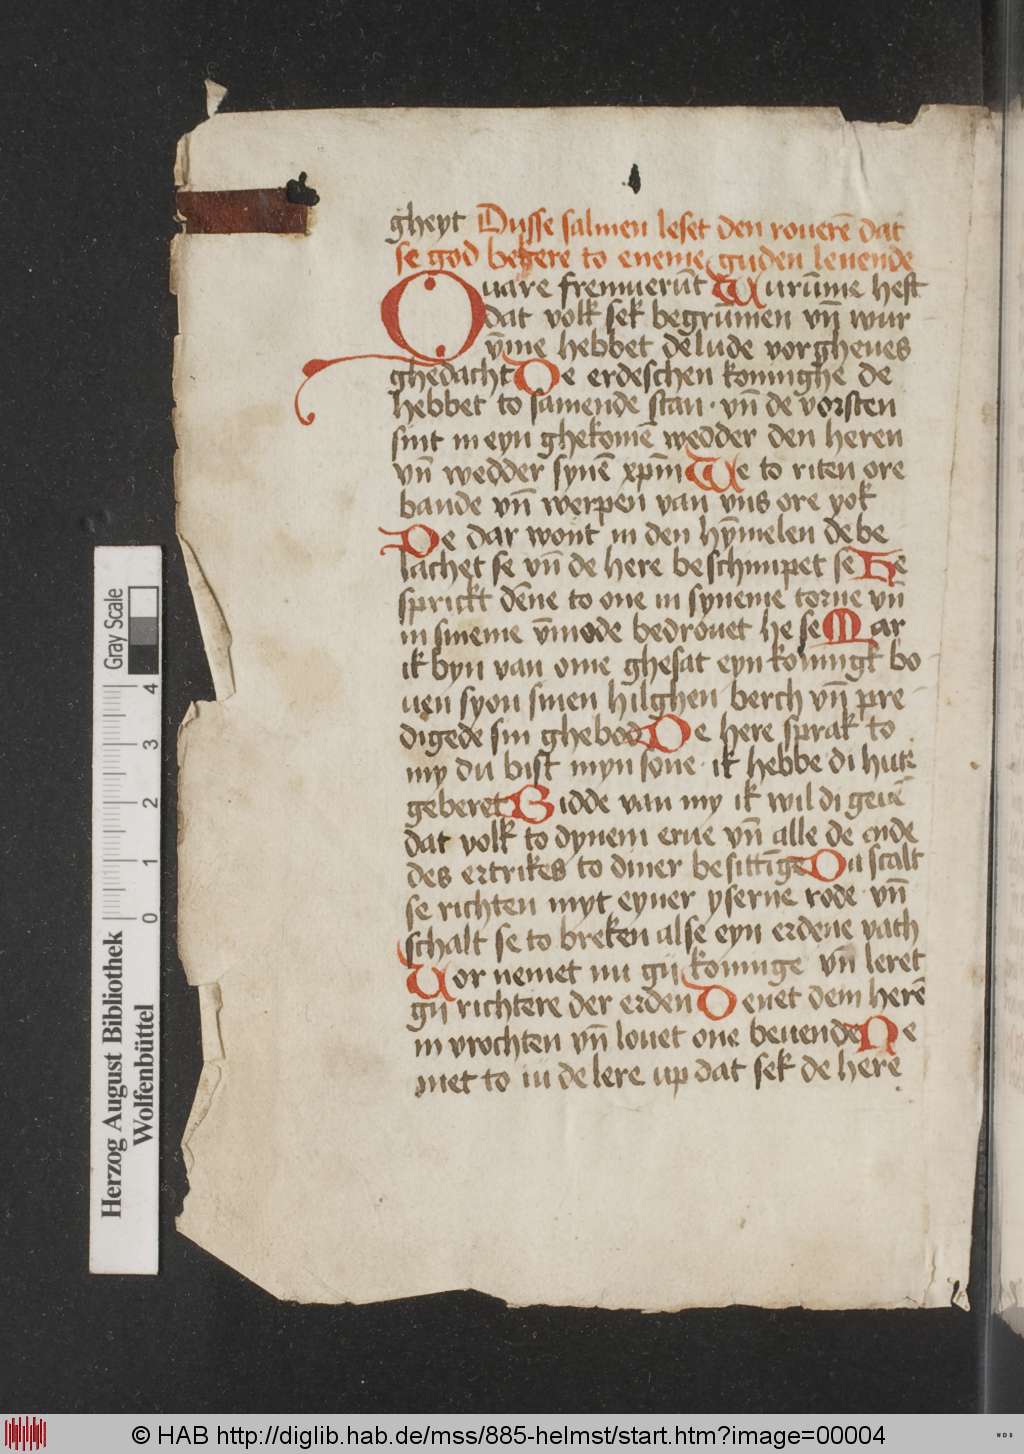 gheyt Dusse salmen leset den rouerē dat
se god begere to eneme guden leuende
Quare fremuerūt Wurūme heft
dat volk sek begrūmen vn̄ wur
v̄me hebbet de lude vorgheues
ghedacht De erdeschen koninghe de
hebbet to samende stan · vn̄ de vorsten
sint in eyn ghekomē wedder den heren
vn̄ wedder synē xpm̄ We to riten ore
bande vn̄ werpen van vns ore yok
De dar wont in den hȳmelen de be
lachet se vn̄ de here beschimpet se He
sprickt dēne to one in syneme torne vn̄
in sineme v̄mode bedrouet he se Mar
ik byn van ome ghesat eyn koningk bo
uen syon sinen hilghen berch vn̄ pre
digede sin ghebod De here sprak to
my du bist myn sone · ik hebbe di hute
geberet Bidde van my ik wil di geuē
dat volk to dynem erue vn̄ alle de ende
des ertrikes to diner besittīge Du scalt
se richten myt eyner yserne rode · vn̄
schalt se to breken alse eyn erdene vath
Vor nemet nu gij koninge vn̄ leret
gij richtere der erden Denet dem herē
in vrochten vn̄ louet one beuende Ne
met to iu de lere up dat sek de here
Herzog August Bibliothek
Wolfenbüttel
Gray Scale
0 1 2 3 4
© HAB http://diglib.hab.de/mss/885-helmst/start.htm?image=00004